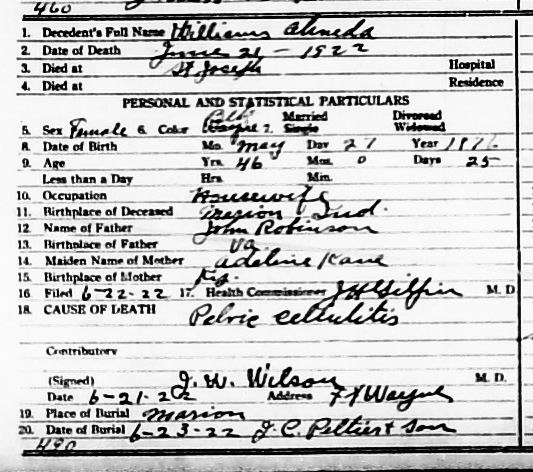 460
1. Decedent's Full Name Williams Almeda
2. Date of Death June 21 - 1922
3. Died at St Joseph Hospital
4. Died at Residence
PERSONAL AND STATISTICAL PARTICULARS
5. Sex Female 6. Color 7. Married Single Divorced Widowed
8. Date of Birth Mo. May Day 27 Year
9. Age Yrs. 46 Mos. 0 Days 25
Less than a Day Hrs. Min.
10. Occupation Housewife
11. Birthplace of Deceased Ind.
12. Name of Father John Robinson
13. Birthplace of Father Va.
14. Maiden Name of Mother Adeline Kane
15. Birthplace of Mother Ky.
16 Filed 6-22-22 17. Health Commissioner J H Gilpin M. D.
18. CAUSE OF DEATH Pelvic cellulitis
Contributory
(Signed) J. W. Wilson M. D.
Date 6-21-22 Address Ft Wayne
19. Place of Burial Marion
20. Date of Burial 6-23-22 J. C. Peltier & Son
490